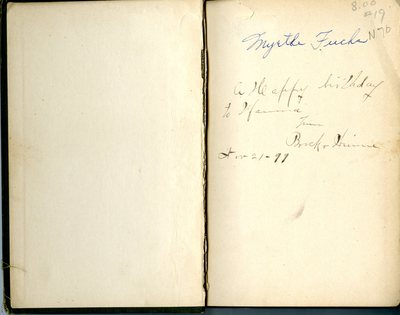 8.00
#19
N70
Myrtle Fuchs
A Happy birthday
to Mamma
From
Brock & Winnie
Nov-21-99